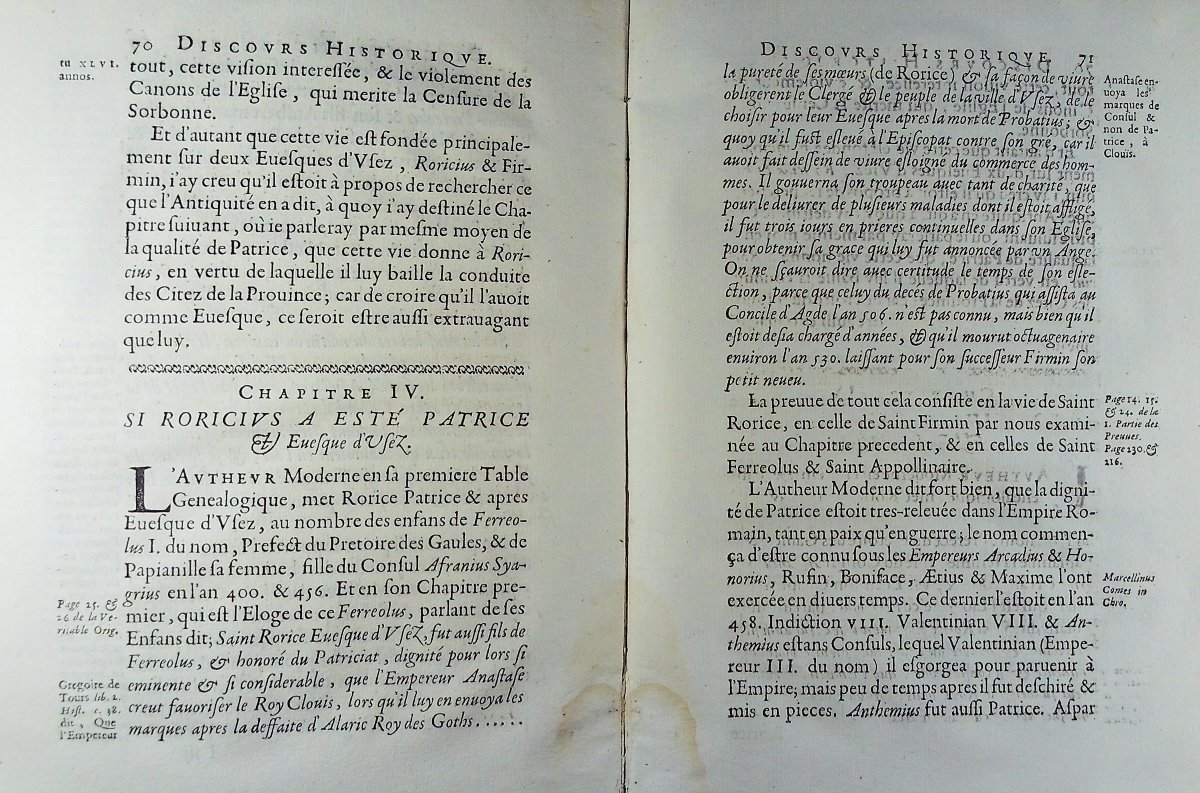 70 DISCOVRS HISTORIQVE.
tu XLVI.
annos.
tout, cette viſion intereſſée, & le violement des
Canons de l'Egliſe, qui merite la Cenſure de la
Sorbonne.
Et d'autant que cette vie eſt fondée principale-
ment ſur deux Eueſques d'Vſez, Roricius & Fir-
min, i'ay creu qu'il eſtoit à propos de rechercher ce
que l'Antiquité en a dit, à quoy i'ay deſtiné le Cha-
pitre ſuiuant, où ie parleray par meſme moyen de
la qualité de Patrice, que cette vie donne à Rori-
cius, en vertu de laquelle il luy baille la conduite
des Citez de la Prouince; car de croire qu'il l'auoit
comme Eueſque, ce ſeroit eſtre auſſi extrauagant
que luy.
CHAPITRE IV.
SI RORICIVS A ESTÉ PATRICE
& Eueſque d'Vſez.
L'AVTHEVR Moderne en ſa premiere Table
Genealogique, met Rorice Patrice & apres
Eueſque d'Vſez, au nombre des enfans de Ferreo-
lus I. du nom, Prefect du Pretoire des Gaules, & de
Papianille ſa femme, fille du Conſul Afranius Sya-
grius en l'an 400. & 456. Et en ſon Chapitre pre-
mier, qui eſt l'Eloge de ce Ferreolus, parlant de ſes
Enfans dit; Saint Rorice Eueſque d'Vſez, fut auſſi fils de
Ferreolus, & honoré du Patriciat, dignité pour lors ſi
eminente & ſi conſiderable, que l'Empereur Anaſtaſe
creut fauoriſer le Roy Clouis, lors qu'il luy en enuoya les
marques apres la deffaite d'Alaric Roy des Goths......
Page 25. &
26 de la Ve-
ritable Orig.
Gregoire de
Tours lib. 2.
Hiſt. c. 38.
dit, Que
l'Empereur
DISCOVRS HISTORIQVE. 71
la pureté de ſes mœurs (de Rorice) & ſa façon de viure
obligerent le Clergé & le peuple de la ville d'Vſez, de le
choiſir pour leur Eueſque apres la mort de Probatius; &
quoy qu'il fuſt eſleué à l'Epiſcopat contre ſon gré, car il
auoit fait deſſein de viure eſloigné du commerce des hom-
mes. Il gouuerna ſon troupeau auec tant de charité, que
pour le deliurer de pluſieurs maladies dont il eſtoit affligé,
il fut trois iours en prieres continuelles dans ſon Egliſe,
pour obtenir ſa grace qui luy fut annoncée par vn Ange.
On ne ſçauroit dire auec certitude le temps de ſon eſle-
ction, parce que celuy du deces de Probatius qui aſſiſta au
Concile d'Agde l'an 506. n'eſt pas connu, mais bien qu'il
eſtoit deſia chargé d'années, & qu'il mourut octuagenaire
enuiron l'an 530. laiſſant pour ſon ſucceſſeur Firmin ſon
petit neueu.
La preuue de tout cela conſiſte en la vie de Saint
Rorice, en celle de Saint Firmin par nous exami-
née au Chapitre precedent, & en celles de Saint
Ferreolus & Saint Appollinaire.
L'Autheur Moderne dit fort bien, que la digni-
té de Patrice eſtoit tres-releuée dans l'Empire Ro-
main, tant en paix qu'en guerre; le nom commen-
ça d'eſtre connu ſous les Empereurs Arcadius & Ho-
norius, Rufin, Boniface, Ætius & Maxime l'ont
exercée en diuers temps. Ce dernier l'eſtoit en l'an
458. Indiction VIII. Valentinian VIII. & An-
themius eſtans Conſuls, lequel Valentinian (Empe-
reur III. du nom) il eſgorgea pour paruenir à
l'Empire; mais peu de temps apres il fut deſchiré &
mis en pieces. Anthemius fut auſſi Patrice. Aſpar
Anaſtaſe en-
uoya les
marques de
Conſul &
non de Pa-
trice, à
Clouis.
Page 14. 15.
& 24. de la
1. Partie des
Preuues.
Page 230. &
216.
Marcellinus
Comes in
Chro.